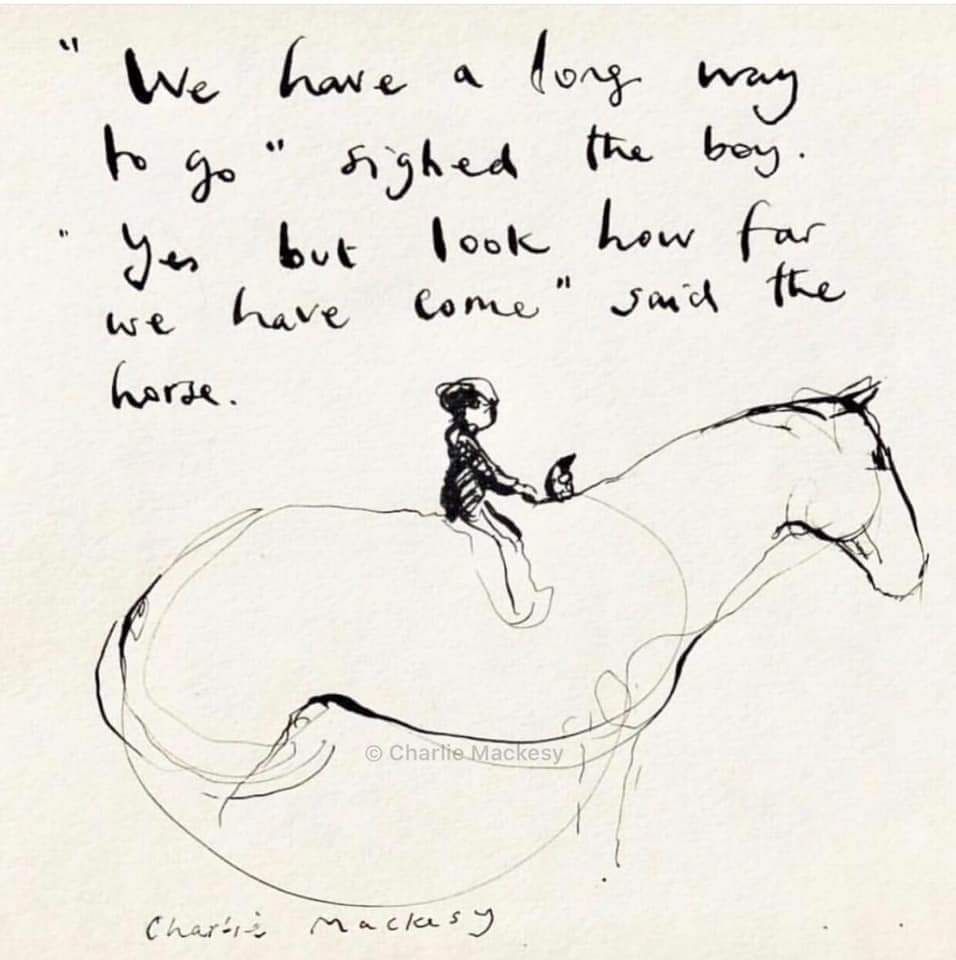 " We have a long way
to go " sighed the boy.
" Yes but look how far
we have come " said the
horse.
© Charlie Mackesy
Charlie Mackesy